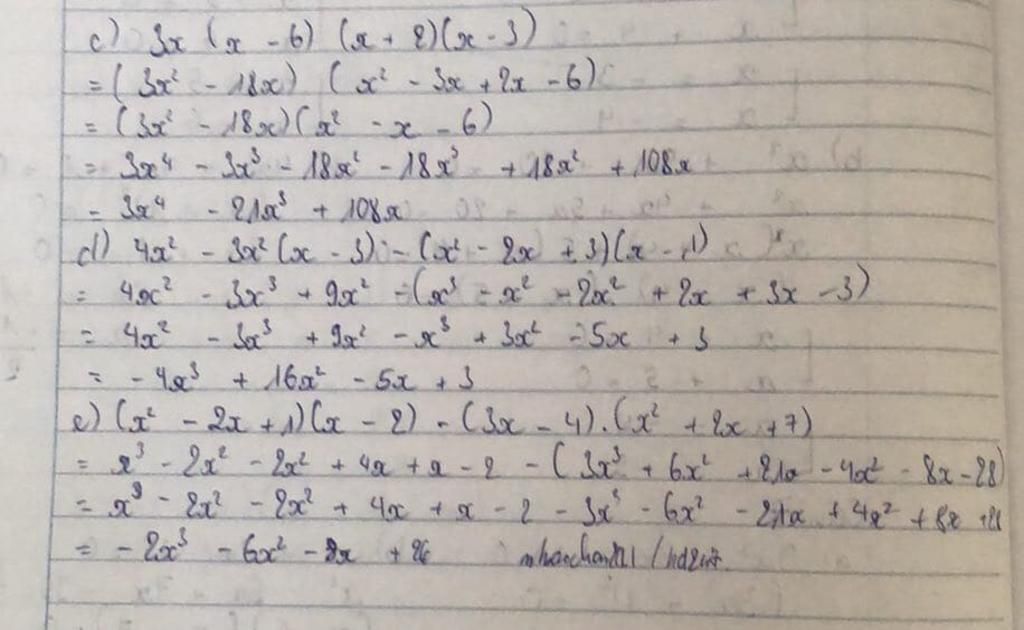 c) 3x (x - 6) (x + 2)(x - 3)
= (3x² - 18x) (x² - 3x + 2x - 6)
= (3x² - 18x)(x² - x - 6)
= 3x⁴ - 3x³ - 18x² - 18x³ + 18x² + 108x
= 3x⁴ - 21x³ + 108x
d) 4x² - 3x² (x - 3) - (x² - 2x + 3)(x - 1)
= 4x² - 3x³ + 9x² - (x³ - x² - 2x² + 2x + 3x - 3)
= 4x² - 3x³ + 9x² - x³ + 3x² - 5x + 3
= - 4x³ + 16x² - 5x + 3
e) (x² - 2x + 1)(x - 2) - (3x - 4).(x² + 2x + 7)
= x³ - 2x² - 2x² + 4x + x - 2 - (3x³ + 6x² + 21x - 4x² - 8x - 28)
= x³ - 2x² - 2x² + 4x + x - 2 - 3x³ - 6x² - 21x + 4x² + 8x + 28
= - 2x³ - 6x² - 8x + 26